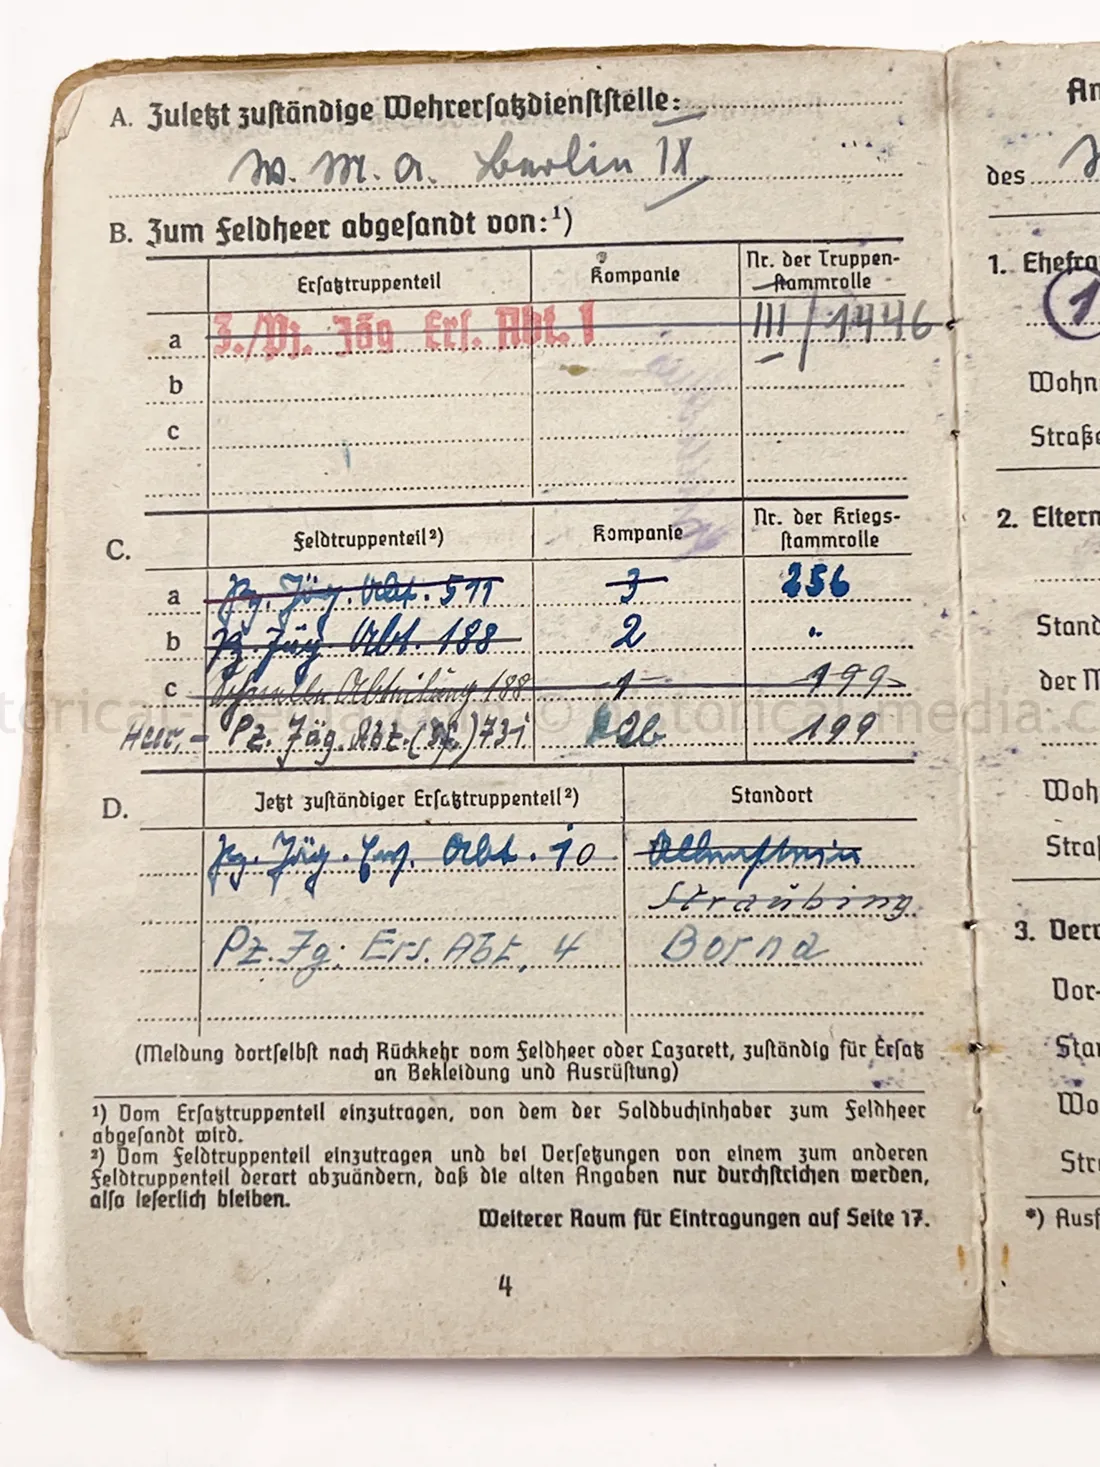 A. Zuletzt zuständige Wehrersatzdienststelle:
W. M. A. Berlin IX
B. Zum Feldheer abgesandt von:¹)
Ersatztruppenteil Kompanie Nr. der Truppen-
stammrolle
a 3./Pz. Jäg Ers. Abt. 1 III/1446
b
c
C. Feldtruppenteil²) Kompanie Nr. der Kriegs-
stammrolle
a Pz. Jäg. Abt. 511 3 256
b Pz. Jäg. Abt. 188 2 "
c Schnelle Abteilung 188 1 199
Pz. Jäg. Abt. 731 199
D. Jetzt zuständiger Ersatztruppenteil²) Standort
Pz. Jäg. Ers. Abt. 10 Allenstein
Straubing
Pz. Jg. Ers. Abt. 4 Borna
(Meldung dortselbst nach Rückkehr vom Feldheer oder Lazarett, zuständig für Ersatz
an Bekleidung und Ausrüstung)
¹) Vom Ersatztruppenteil einzutragen, von dem der Soldbuchinhaber zum Feldheer
abgesandt wird.
²) Vom Feldtruppenteil einzutragen und bei Versetzungen von einem zum anderen
Feldtruppenteil derart abzuändern, daß die alten Angaben nur durchstrichen werden,
also leserlich bleiben.
Weiterer Raum für Eintragungen auf Seite 17.
4
An
des
1. Ehefra
1
Wohn
Straße
2. Eltern
Stand
der M
Woh
Straß
3. Verw
Vor-
Stan
Wo
Str
*) Ausf